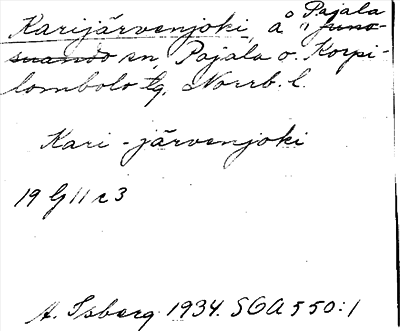 Karijärvenjoki, å i Pajala
sn, Pajala o. Korpi-
lombolo tg, Norrb. l.
Kari - järvenjoki
19 G 11 c 3
A. Isberg 1934. SOA 550:1